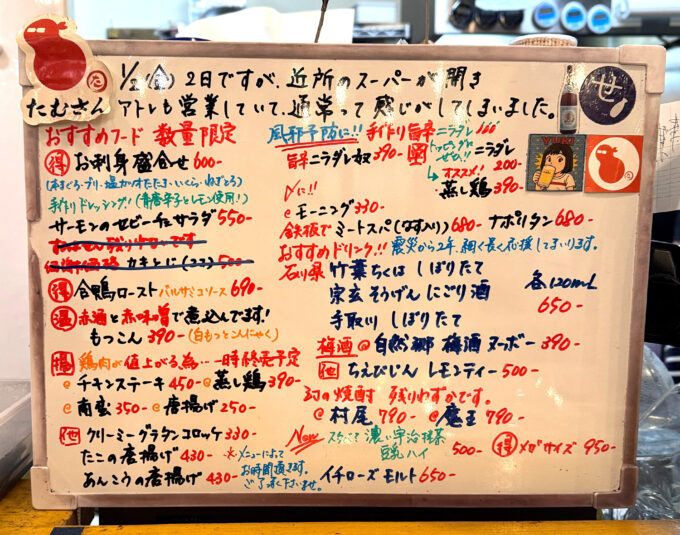 たむさん
1/2(金) 2日ですが、近所のスーパーが開き
アトレも営業していて、通常って感じがしてしまいました。
せ
おすすめフード 数量限定
得 お刺身盛合せ 600-
(本まぐろ・ブリ・塩かつおたたき・いくら・ねぎとろ)
手作りドレッシング!(青唐辛子とレモン使用!)
サーモンのセビーチェサラダ 550-
得 合鴨ロースト バルサミコソース 690-
温 赤酒と赤味噌で煮込んでます!
もつこん 390- (白もつとこんにゃく)
鶏肉が値上がる為… 一時終売予定
@チキンステーキ 450- @蒸し鶏 390-
@南蛮 350- @唐揚げ 250-
他 クリーミーグラタンコロッケ 330-
たこの唐揚げ 430-
あんこうの唐揚げ 430-
※メニューによって
お時間頂きます。
ご了承下さいませ。
風邪予防に!! 手作り旨辛ニラダレ
旨辛ニラダレ奴 390-
トッピングにぜひ!! ニラダレ
200-
オススメ! 蒸し鶏 390-
〆に!!
@モーニング 330-
鉄板で ミートスパ(なす入り) 680- ナポリタン 680-
おすすめドリンク!! 震災から2年、細く長く応援してまいります。
石川県 竹葉 ちくは しぼりたて
宗玄 そうげん にごり酒
手取川 しぼりたて
各120mL
650-
梅酒 @自然郷 梅酒 ヌーボー 390-
他 ちえびじん レモンティー 500-
幻の焼酎 残りわずかです。
@村尾 790- @魔王 790-
New
濃い宇治抹茶
豆乳ハイ
500-
得 メガサイズ 950-
イチローズモルト 650-